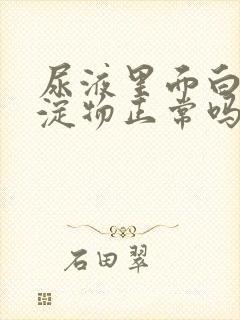 尿液里面白
淀物正常吗
石田翠